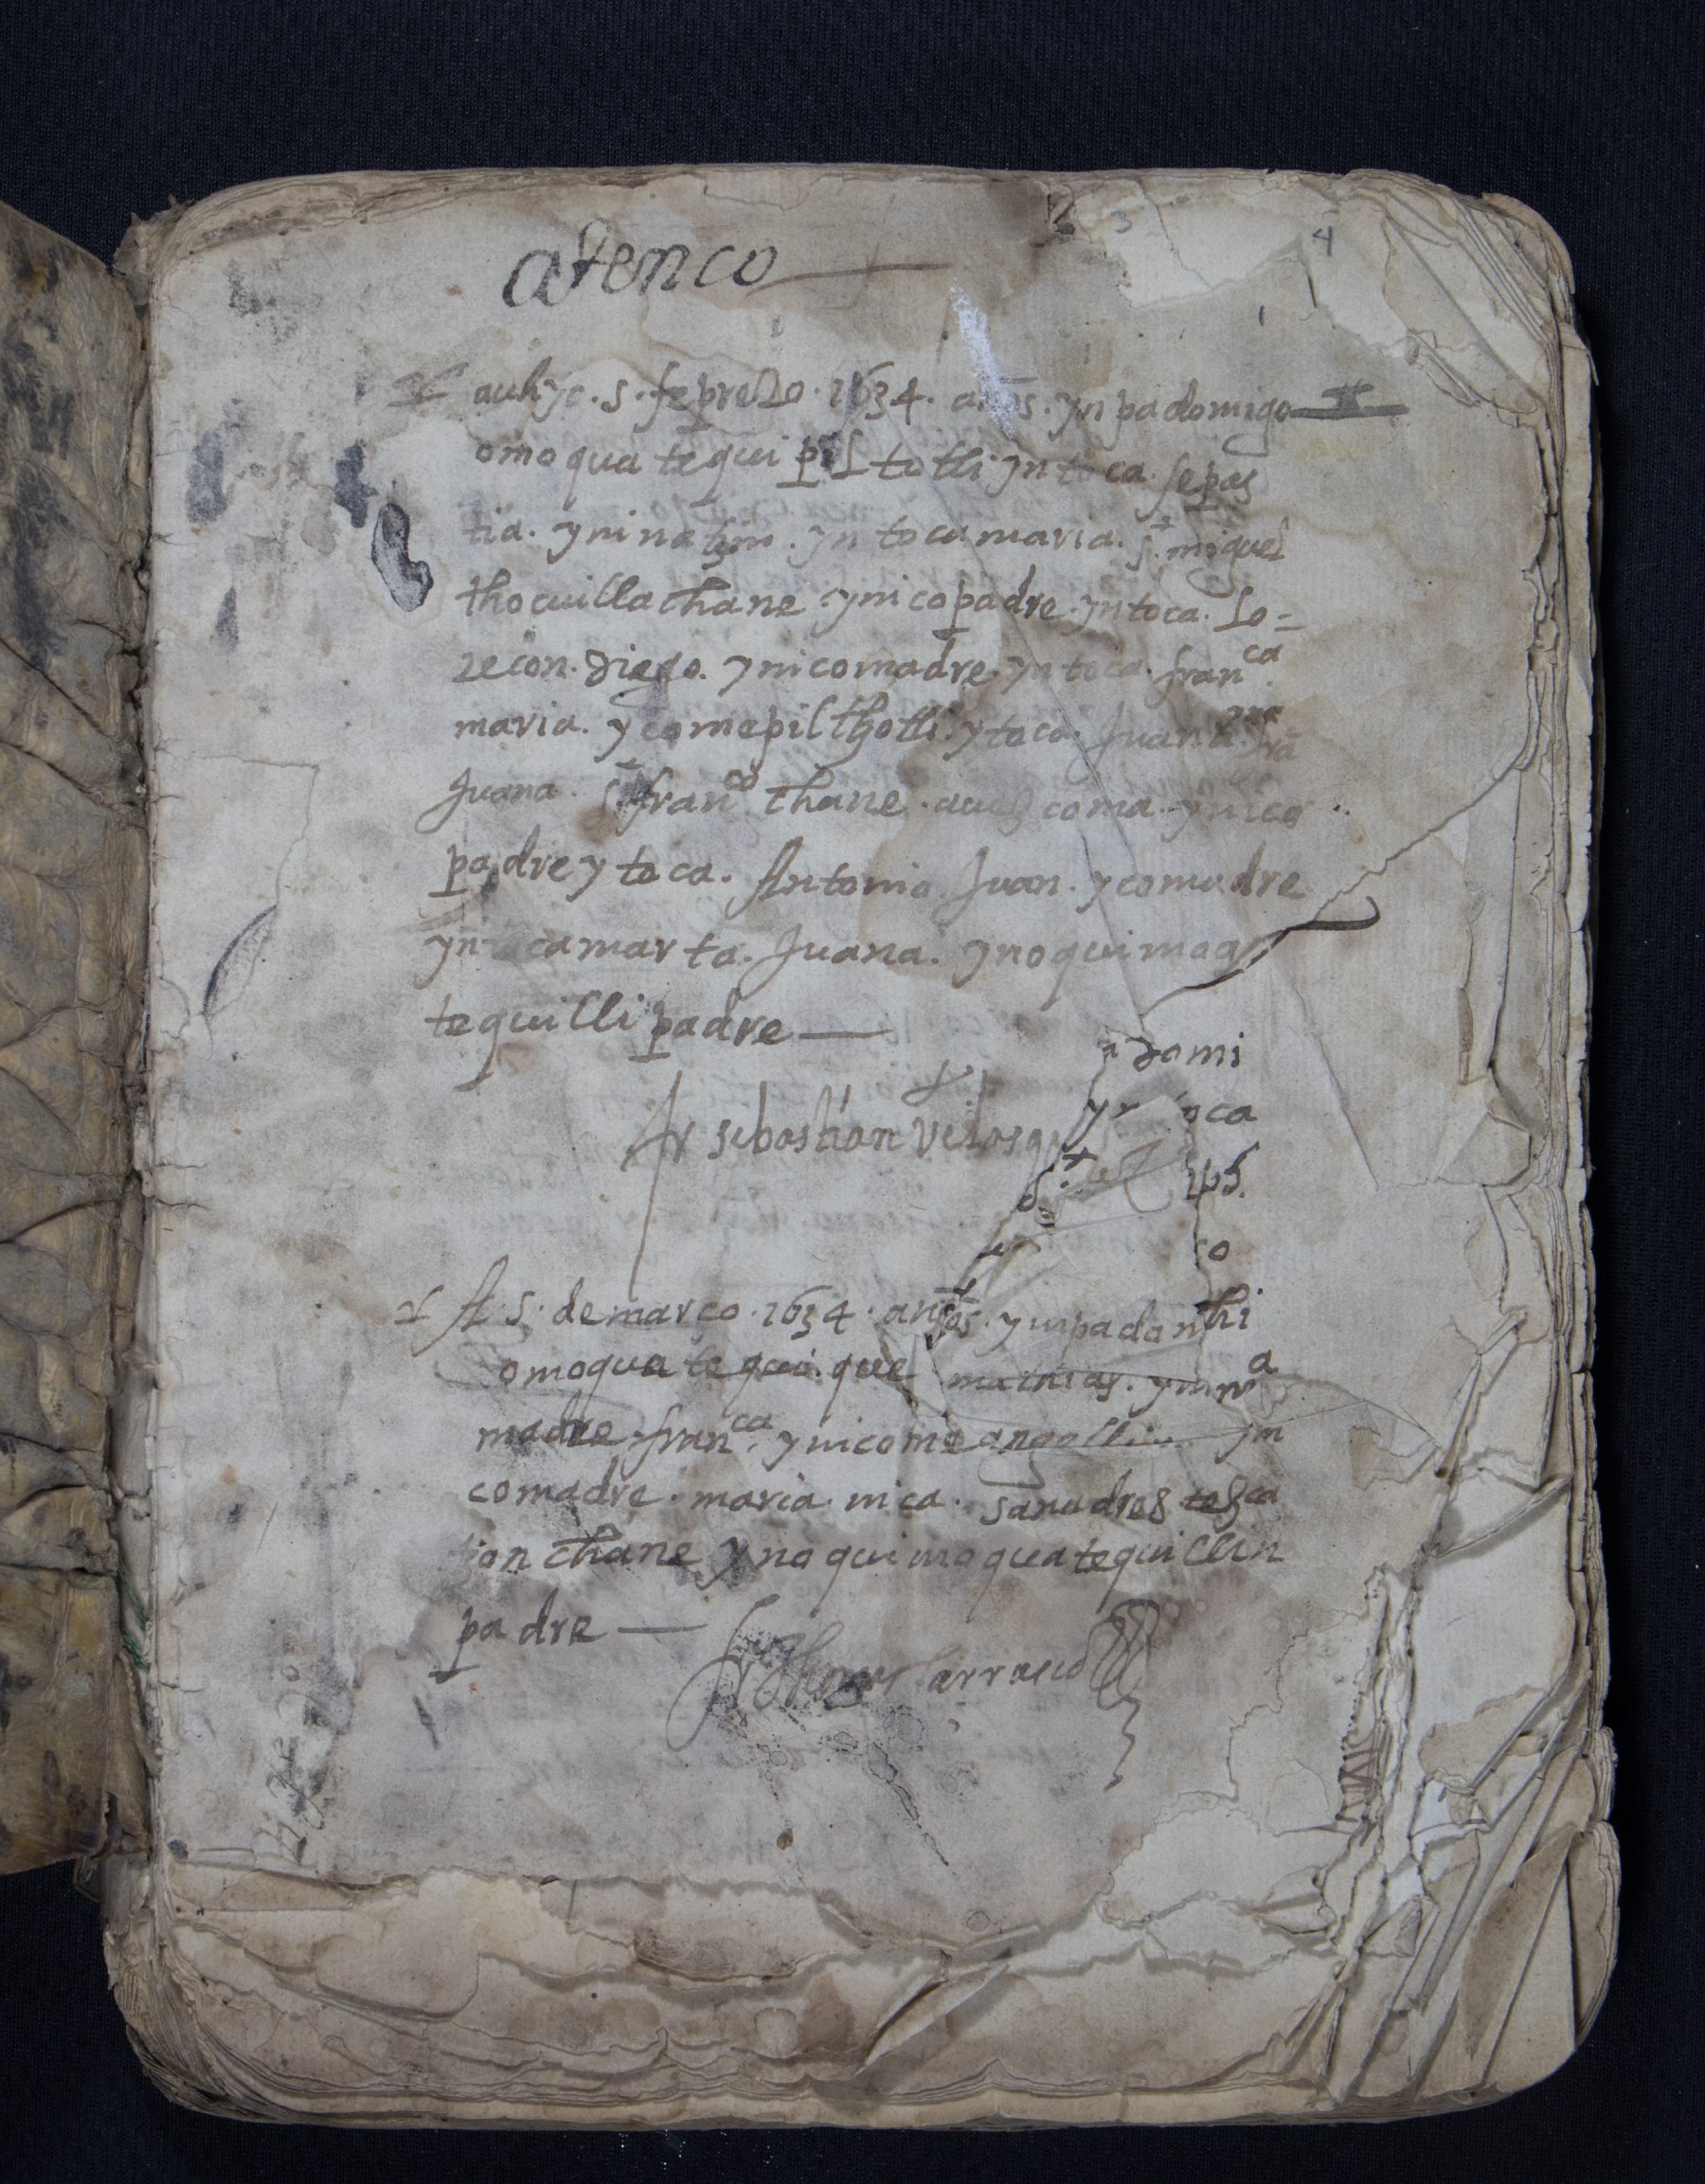 atenco
3
4
auhyc. s. seprero. 1634. años. yn padomigo
omo qua tequi pil totli yn toca. sepas
tia. yni natzin. yn toca maria. s. miguel
thocuilla chane. ynicopadre. yntoca. lo=
recon. diego. ynicomadre. yn toca. fran^ca
maria. ycomepil thotli. y toca. Juana.
Juana. s. fran^co chane. coma. ynico
padre y toca. Antonio. Juan. ycomadre
yn tocamarta. Juana. ynoquimoq
tequilli padre
fr sebastian velasq
domi
oca
o
A. s. de março. 1634. años. yn padan
thi
omoqua tequi. que mathias. ynin
a
madre. fran^ca. ynicome angelli
yn
comadre. maria. nica. sanudres tesca
tion chane ynoquimoquatequillin
padre
fr Thomas Carrasco